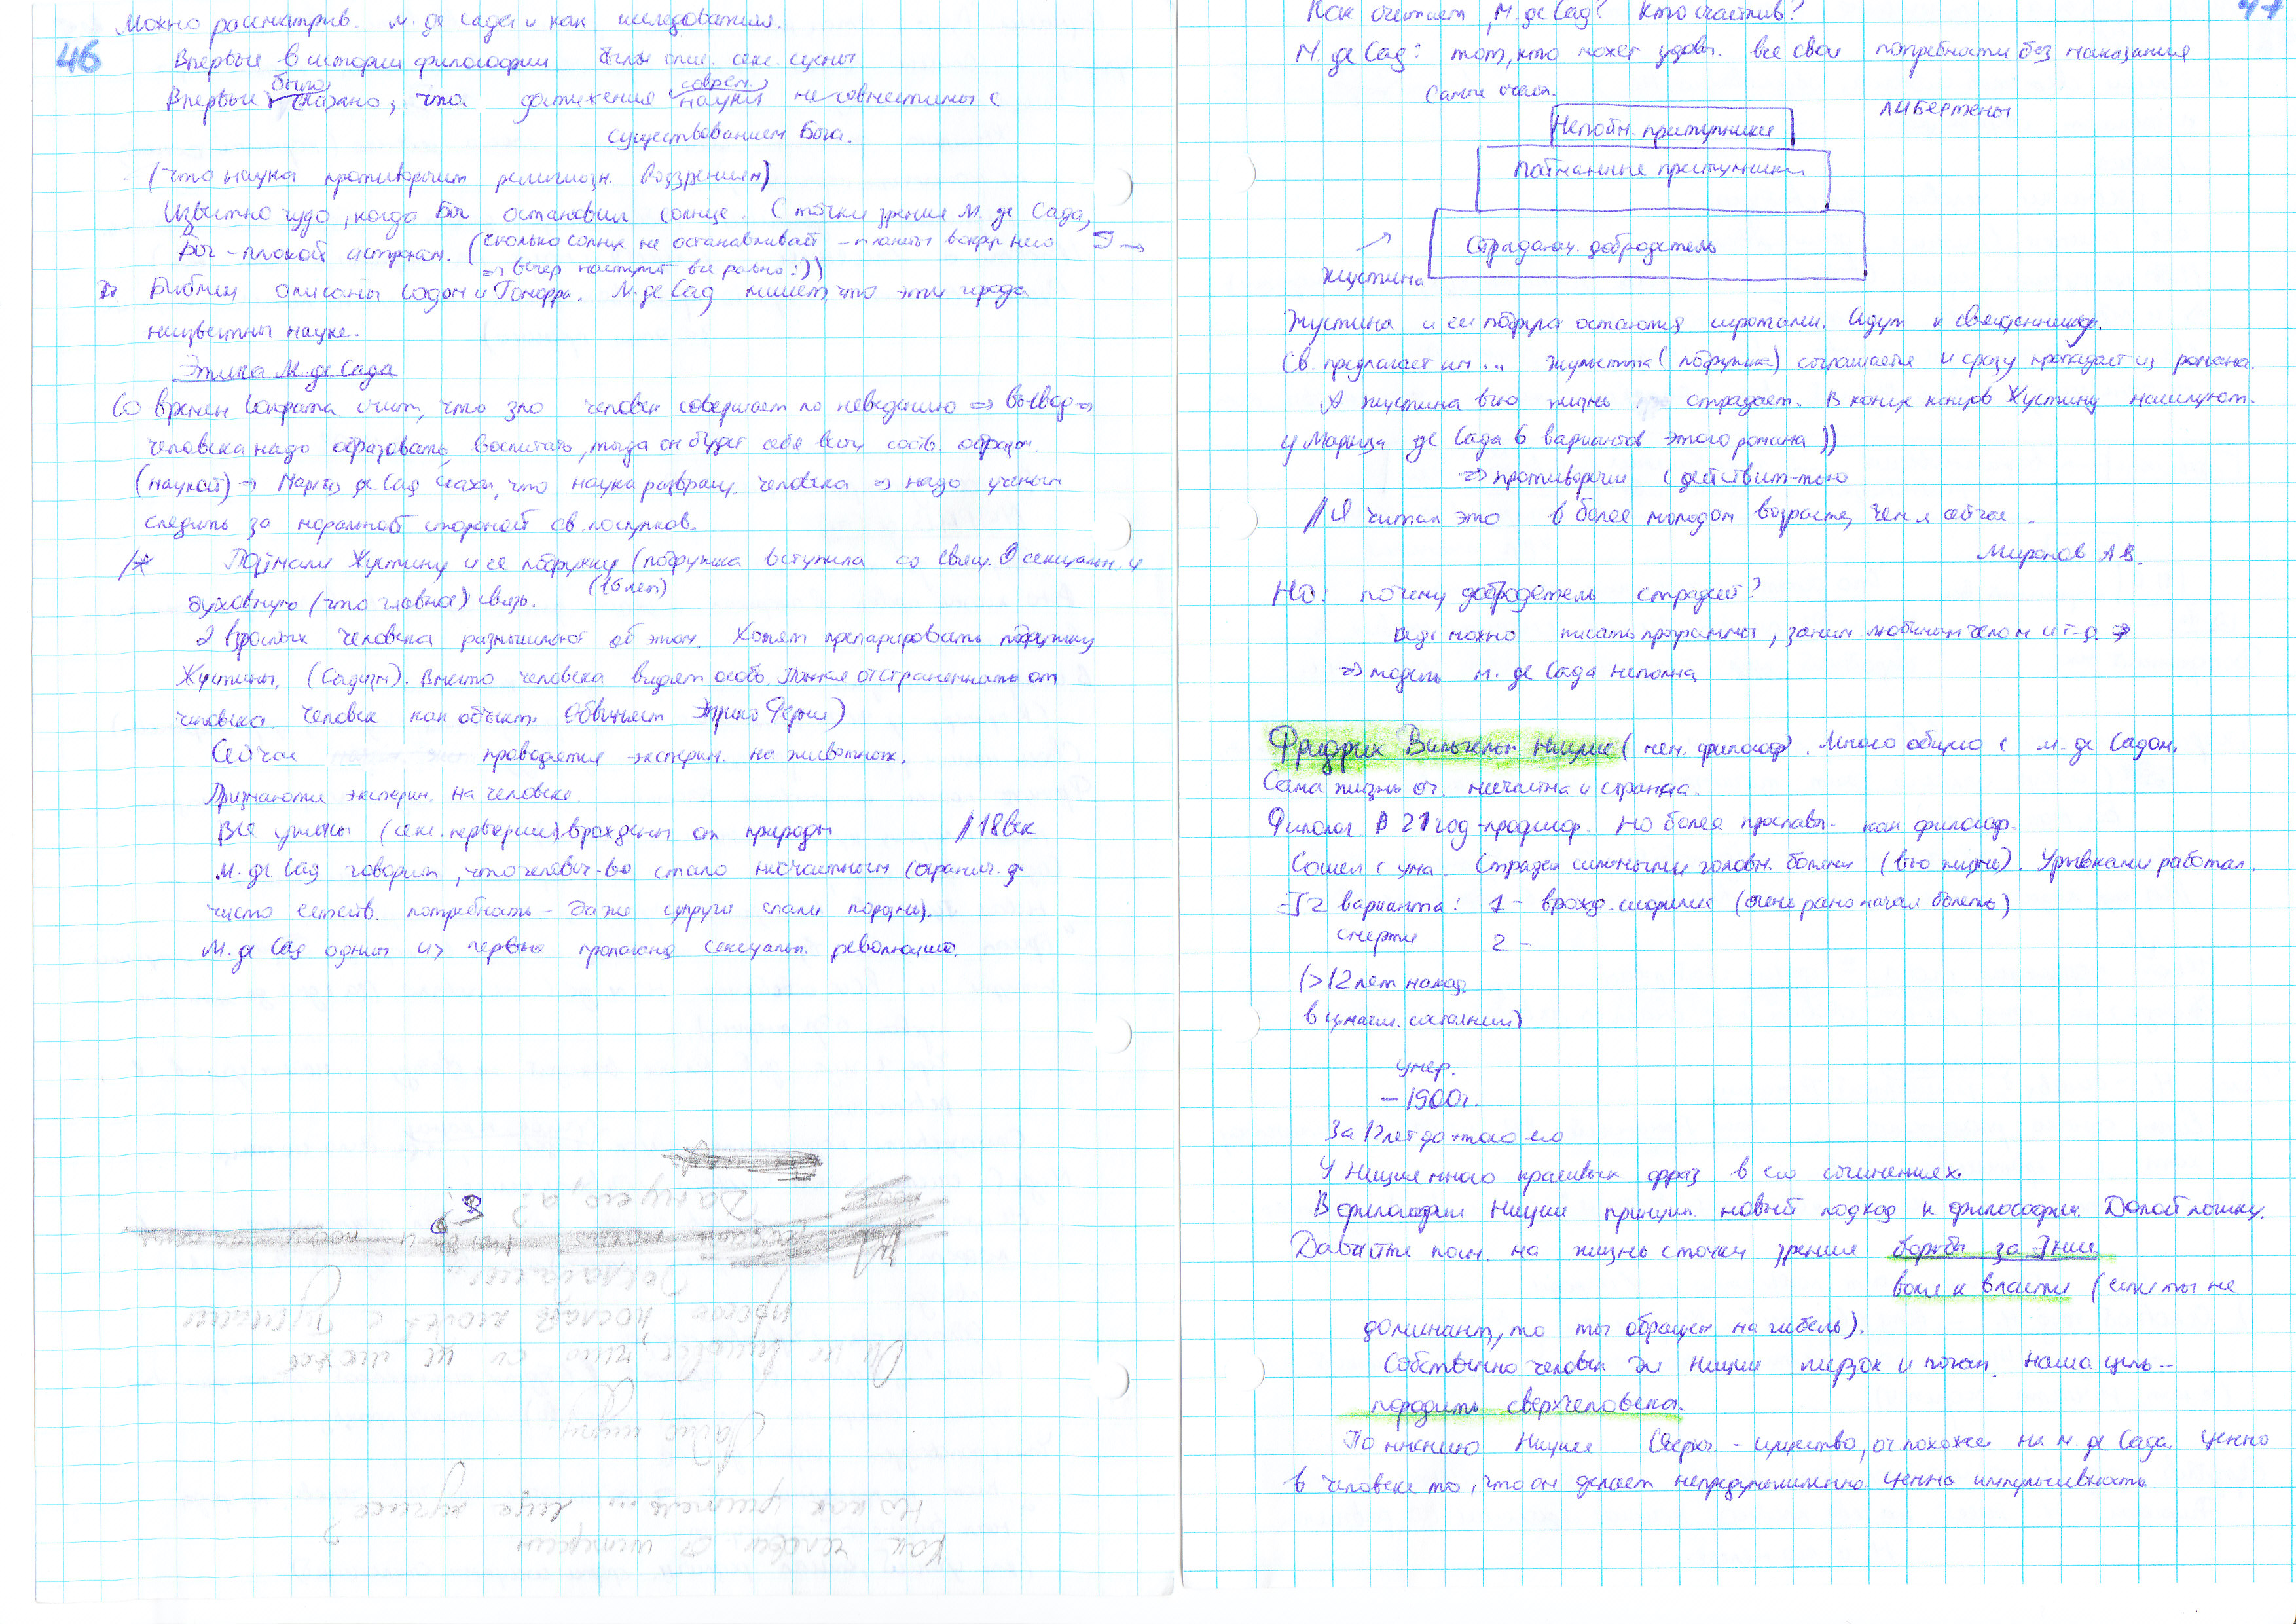 46
Можно рассматрив. М. де Сада и как исследователя.
Впервые в истории философии были опис. секс. сцены
Впервые было сказано, что достижения соврем. науки не совместимы с
существованием Бога.
(что наука противоречит религиозн. воззрениям)
Известно чудо, когда Бог остановил солнце. С точки зрения М. де Сада,
Бог - плохой астроном. (сколько солнце не останавливай - планеты вокруг него
=> вечер наступит все равно :))
В Библии описаны Содом и Гоморра. М. де Сад пишет, что эти города
неизвестны науке.
Этика М. де Сада
Со времен Сократа счит, что зло человек совершает по неведению => вывод =>
человека надо образовать, воспитать, тогда он будет себя вести соотв. образом.
(наукой) -> Маркиз де Сад сказал, что наука развращ. человека => надо ученым
следить за моральной стороной св. поступков.
/* Поймали Жустину и ее подружку (подружка вступила со свящ. в сексуальн. и
духовную (что главное) связь. (16 лет)
2 взрослых человека размышляют об этом. Хотят препарировать подружку
Жустины. (Садизм). Вместо человека видят особь. Полная отстраненность от
человека. Человек как объект. Обвиняет Энрико Ферми)
Сейчас проводятся эксперим. на животных.
Признаются эксперим. на человеке.
Все утехи (секс. перверсии) врождены от природы /18 век
М. де Сад говорит, что человеч-во стало несчастным (огранич. д.
чисто естеств. потребность - даже супруги спали порознь).
М. де Сад одним из первых пропаганд. сексуальн. революцию.
Дануево, а?
Он не виноват, что он не похож
Но как учитель ... еще лучше?
Как человек он интересен
47
Как считает М. де Сад? Кто счастлив?
М. де Сад: тот, кто может удовл. все свои потребности без наказания
Самые счаст.
Непойм. преступники
либертены
Пойманные преступники
Страдающ. добродетель
Жустина
Жустина и ее подруга остаются сиротами. Идут к священнику.
Св. предлагает им ... Жульетта (подружка) соглашается и сразу пропадает из романа.
А Жустина всю жизнь страдает. В конце концов Жустину насилуют.
У Маркиза де Сада 6 вариантов этого романа ))
=> противоречие с действит-тью
// Я читал это в более молодом возрасте, чем я сейчас.
Миронов А.В.
Но: почему добродетель страдает?
Ведь можно писать программы, заним. любимым делом и т-д. =>
=> модель М. де Сада неполна
Фридрих Вильгельм Ницше (нем. философ). Много общего с М. де Садом.
Сама жизнь оч. несчастна и странна.
Филолог. В 21 год - профессор. Но более прославл. как философ.
Сошел с ума. Страдал сильными головн. болями (всю жизнь). Урывками работал.
-∃ 2 варианта: 1 - врожд. сифилис (очень рано начал болеть)
смерти 2 -
(> 12 лет назад
в сумасш. состоянии)
умер.
- 1900г.
За 12 лет до этого его
У Ницше много красивых фраз в его сочинениях.
В философии Ницше принцип. новый подход к философии. Долой логику.
Давайте посм. на жизнь с точки зрения борьбы за ∃ние
воли к власти (если ты не
доминант, то ты обречен на гибель).
Собственно человек для Ницше мерзок и поган. Наша цель -
породить сверхчеловека.
По мнению Ницше Сверхч - существо, оч. похожее на М. де Сада. Ценно
в человеке то, что он делает непредумышленно. Ценна импульсивность